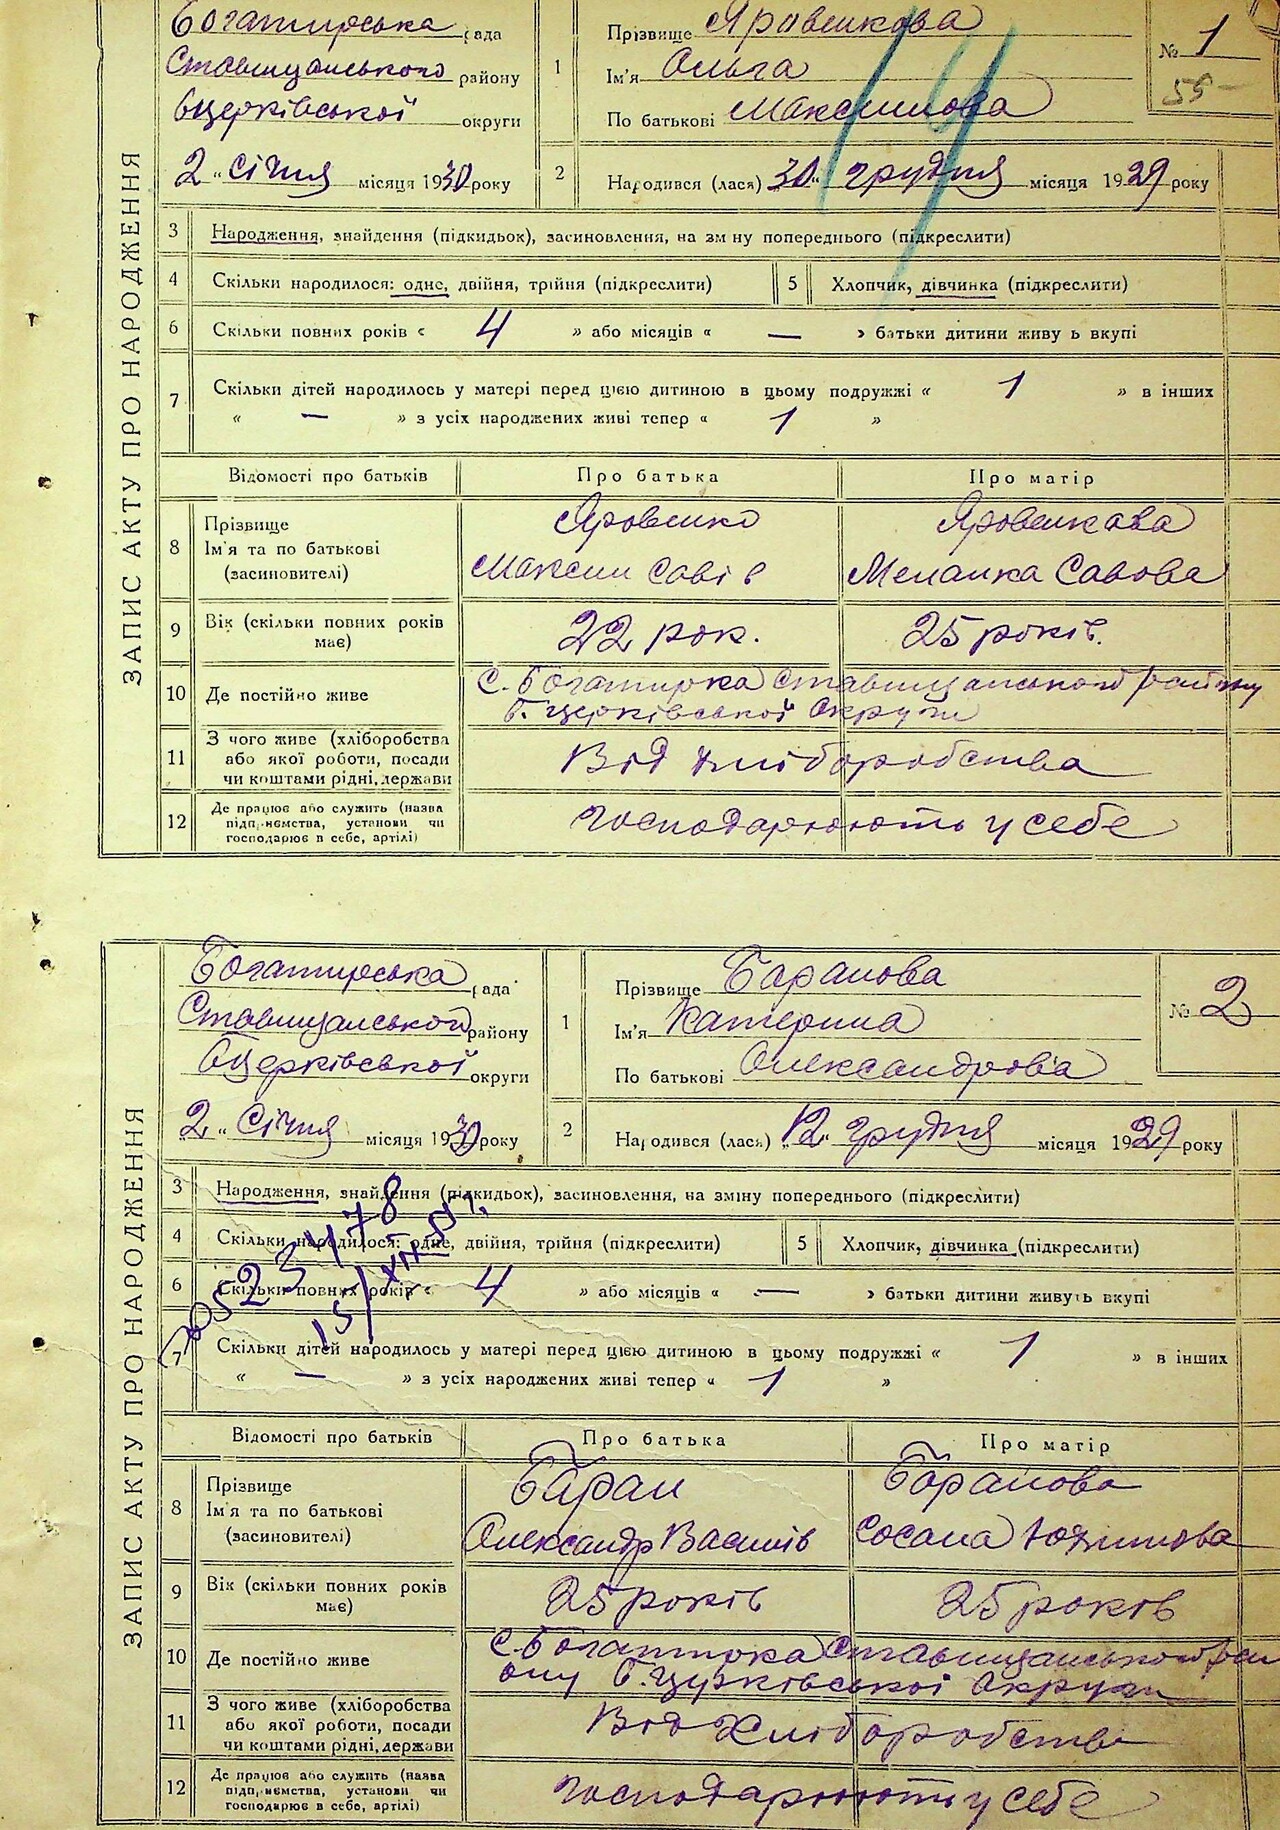 ЗАПИС АКТУ ПРО НАРОДЖЕННЯ
Богатирська рада
Ставищанського району
Бцерківської округи
2 „ Січня місяця 1930 року
1 Прізвище Яровенкова
Ім'я Ольга
По батькові Максимова
№ 1
55 -
2 Народився (лася) 30 „ грудня місяця 1929 року
3 Народження, знайдення (підкидьок), засиновлення, на зм ну попереднього (підкреслити)
4 Скільки народилося: одне, двійня, трійня (підкреслити) 5 Хлопчик, дівчинка (підкреслити)
6 Скільки повних років « 4 » або місяців « — » батьки дитини живу ь вкупі
7 Скільки дітей народилось у матері перед цією дитиною в цьому подружжі « 1 » в інших
« — » з усіх народжених живі тепер « 1 »
Відомості про батьків Про батька Про матір
8 Прізвище Яровенко Яровенкова
Ім'я та по батькові
(засиновителі) Максим Савів Меланка Савова
9 Вік (скільки повних років
має) 22 рок. 25 років.
10 Де постійно живе С. Богатирка Ставищанського району
Б. Церківської Округи
11 З чого живе (хліборобства
або якої роботи, посади
чи коштами рідні, держави Від хліборобства
12 Де працює або служить (назва
підп.ємства, установи чи
господарює в себе, артілі) господарюють у себе
ЗАПИС АКТУ ПРО НАРОДЖЕННЯ
Богатирська рада
Ставищанського району
Бцерківської округи
2 „ Січня місяця 1930 року
1 Прізвище Баранова
Ім'я Катерина
По батькові Олександрова
№ 2
2 Народився (лася) 12 „ грудня місяця 1929 року
3 Народження, знайдення (підкидьок), засиновлення, на зміну попереднього (підкреслити)
4 Скільки народилося: одне, двійня, трійня (підкреслити) 5 Хлопчик, дівчинка (підкреслити)
6 Скільки повних років « 4 » або місяців « — » батьки дитини живуть вкупі
7 Скільки дітей народилось у матері перед цією дитиною в цьому подружжі « 1 » в інших
« — » з усіх народжених живі тепер « 1 »
Відомості про батьків Про батька Про матір
8 Прізвище Баран Баранова
Ім'я та по батькові
(засиновителі) Олександр Василів
9 Вік (скільки повних років
має) 25 років 25 років
10 Де постійно живе С. Богатирка Ставищанського рай
ону Б. Церківської Округи
11 З чого живе (хліборобства
або якої роботи, посади
чи коштами рідні, держави Від Хліборобства
12 Де працює або служить (назва
підп.ємства, установи чи
господарює в себе, артілі) господарюють у себе